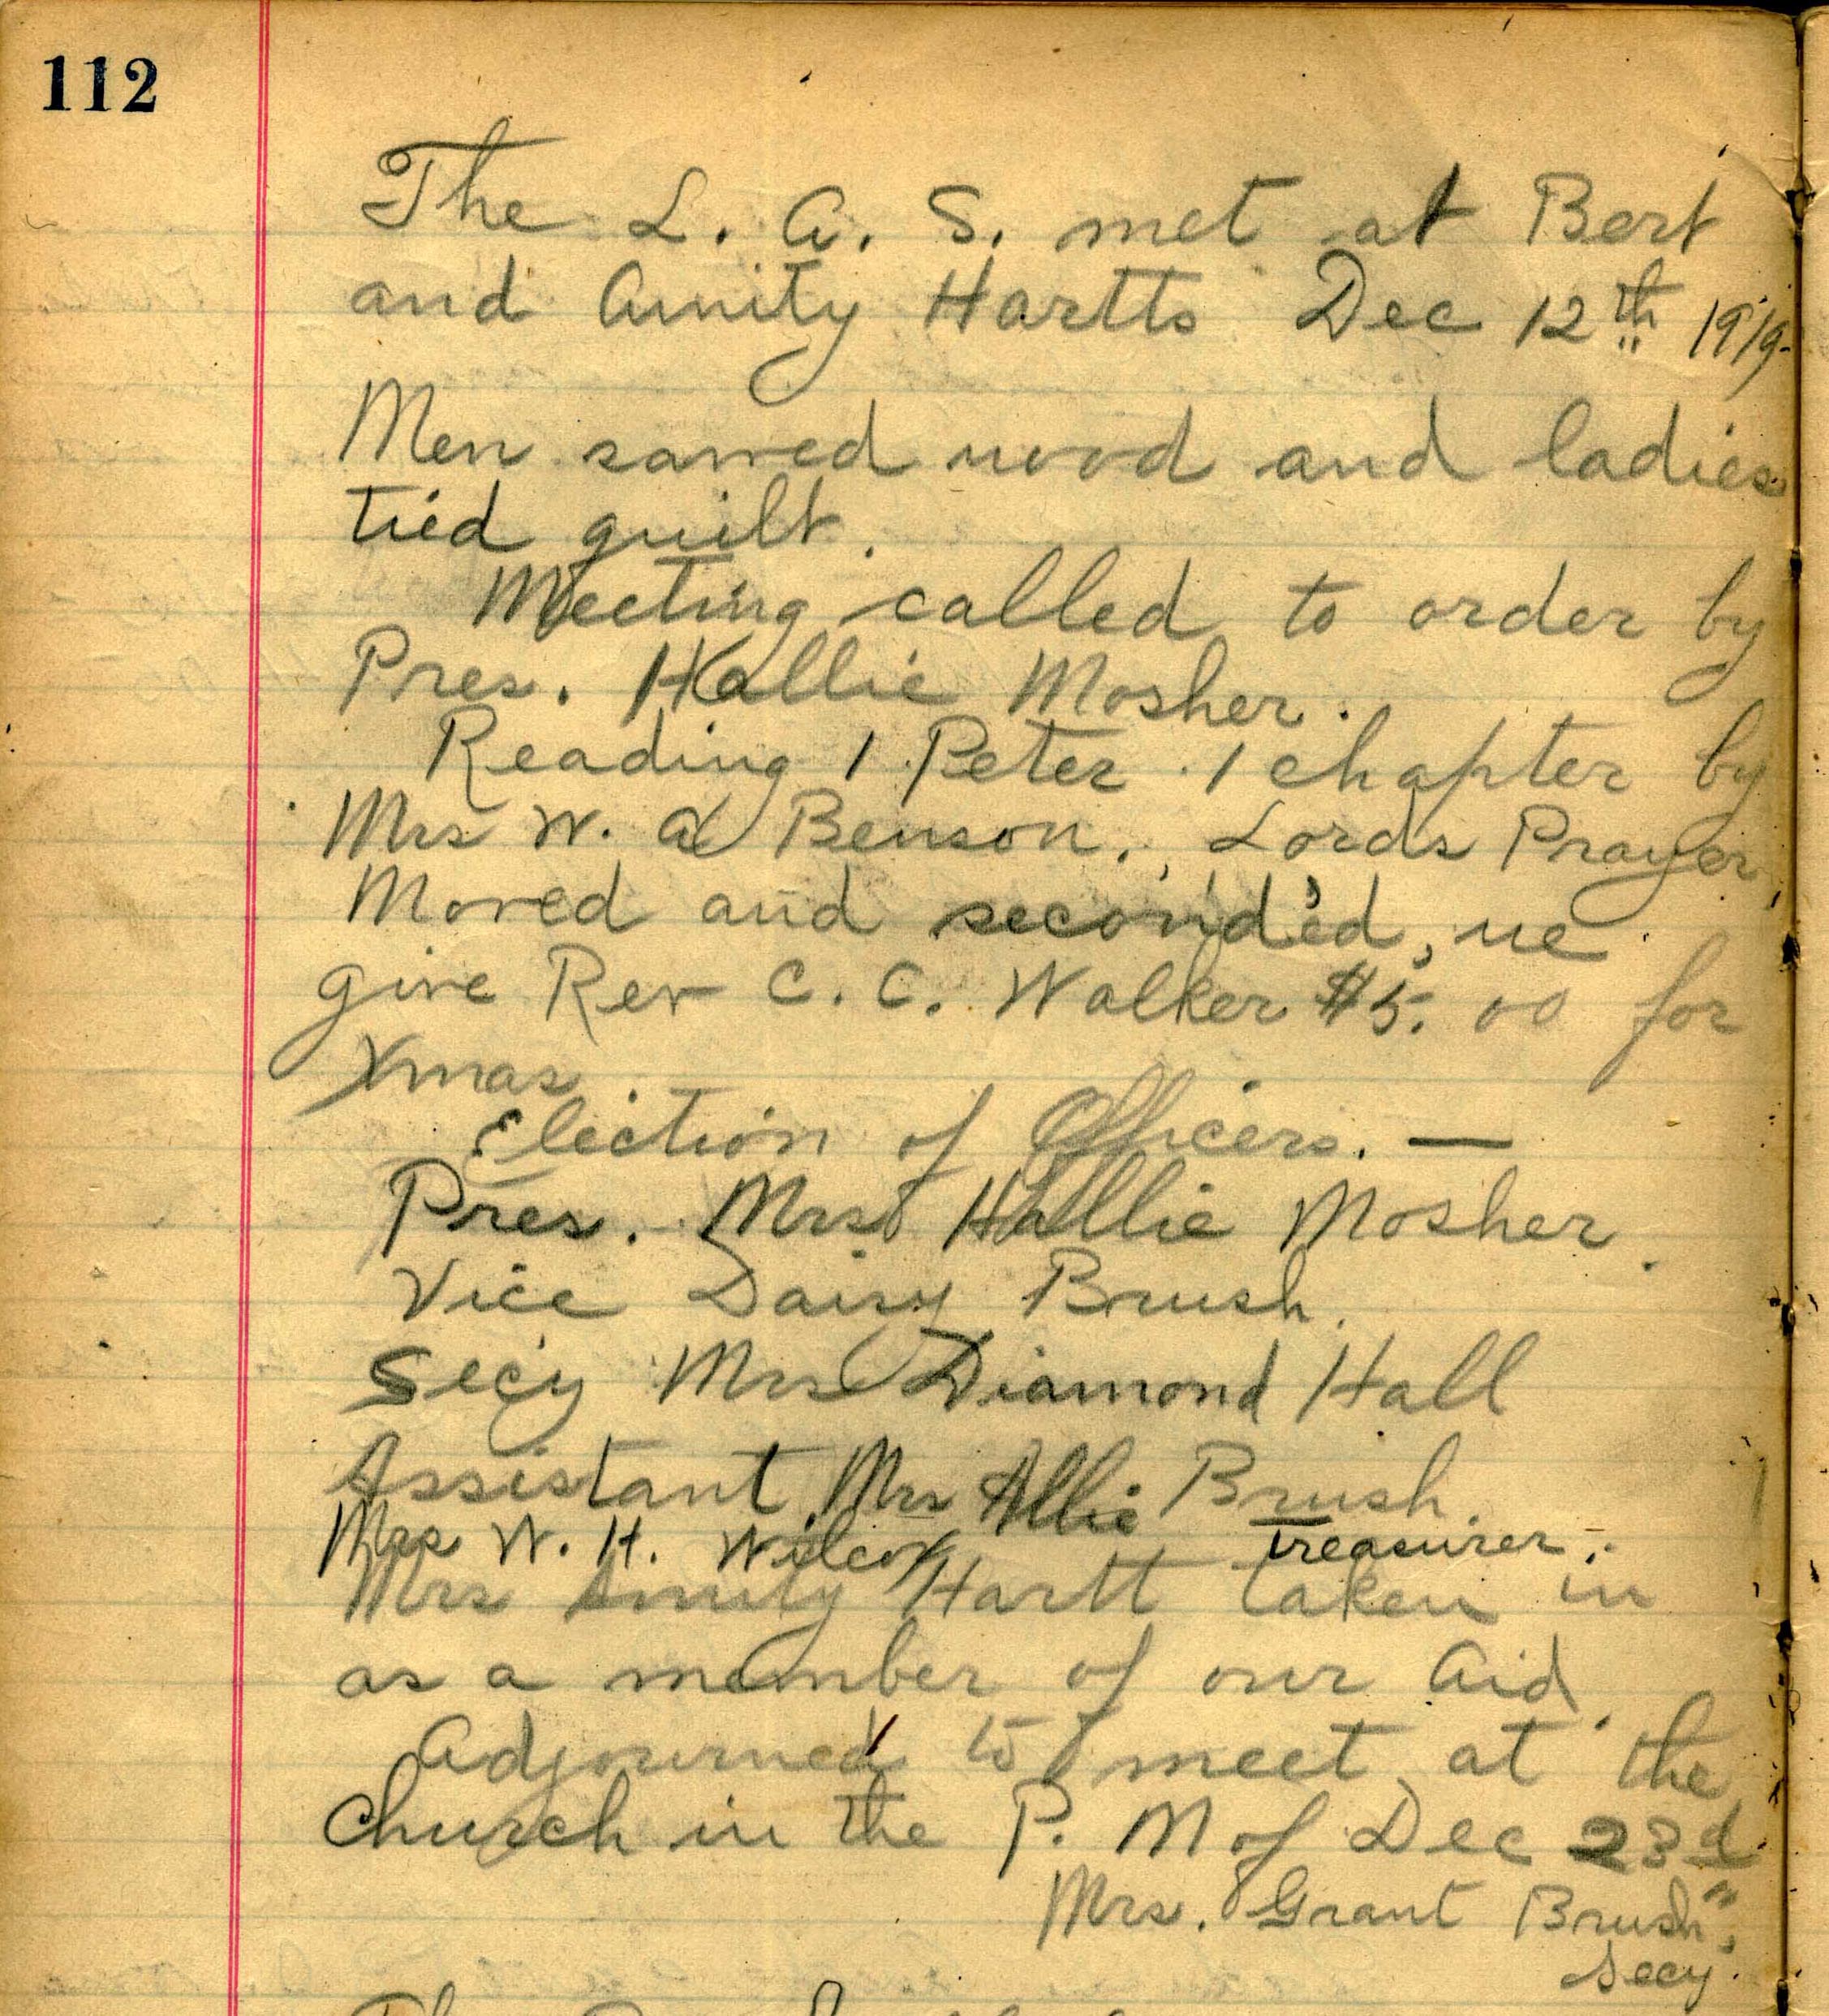 112
The L. A. S. met at Bert
and Amity Hartts Dec 12th 1919.
Men sawed wood and ladies
tied quilt.
Meeting called to order by
Pres. Hallie Mosher.
Reading 1 Peter 1 chapter by
Mrs W. A Benson. Lords Prayer,
Moved and second'ed, we
give Rev C. C. Walker $5.00 for
Xmas.
Election of Officers. —
Pres. Mrs Hallie Mosher.
Vice Daisy Brush.
Secy Mrs Diamond Hall
Assistant Mrs Allie Brush.
Mrs W. H. Wilcox Treasurer.
Mrs Amity Hartt taken in
as a member of our Aid.
Adjourned to meet at the
Church in the P. M of Dec 23d
Mrs. Grant Brush,
Secy.